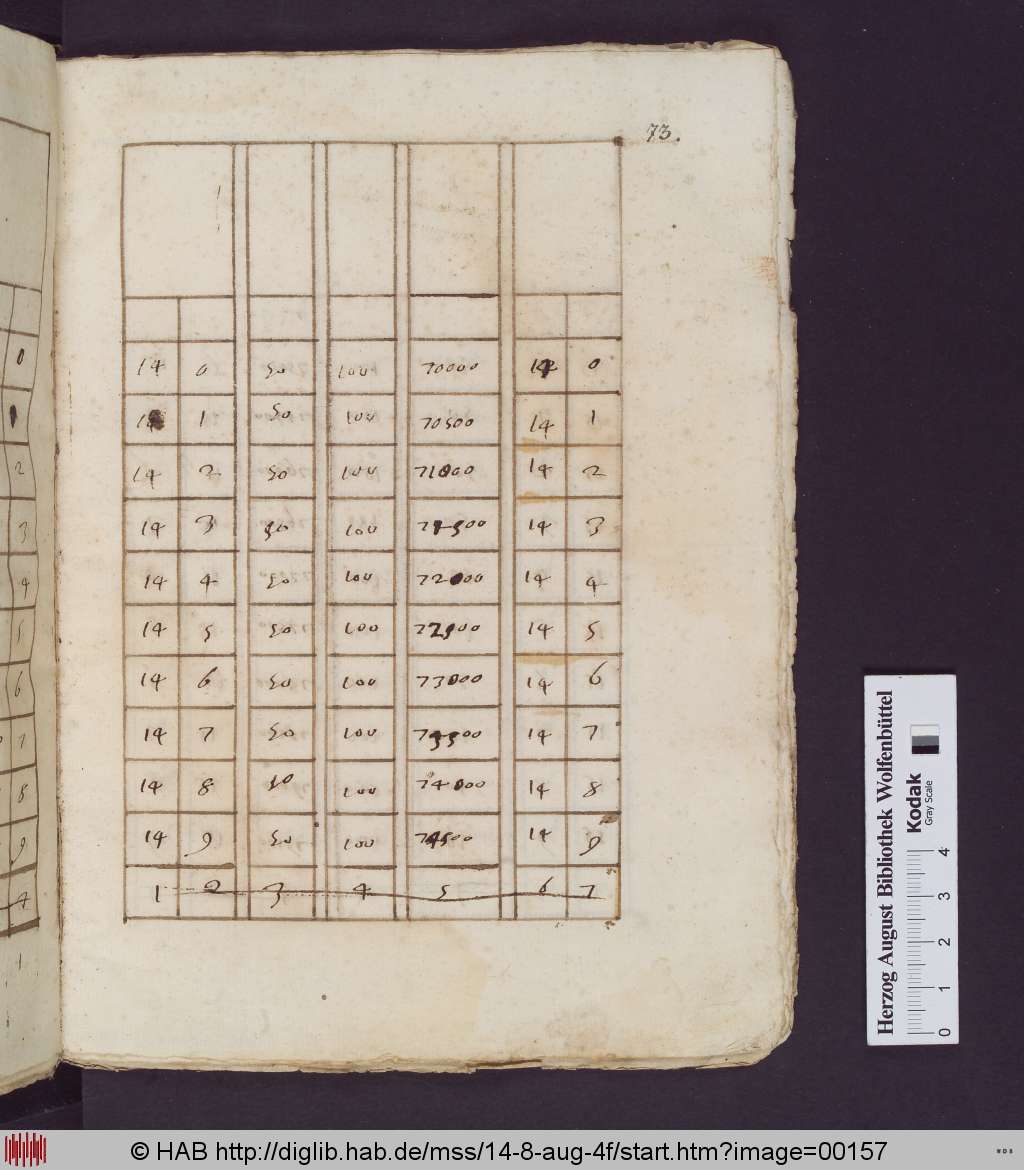 73.
14 0 50 100 70000 14 0
14 1 50 100 70500 14 1
14 2 50 100 71000 14 2
14 3 50 100 71500 14 3
14 4 50 100 72000 14 4
14 5 50 100 72500 14 5
14 6 50 100 73000 14 6
14 7 50 100 73500 14 7
14 8 50 100 74000 14 8
14 9 50 100 74500 14 9
1 2 3 4 5 6 7
0
1
2
3
4
5
6
7
8
9
4
1
Herzog August Bibliothek Wolfenbüttel
Kodak
Gray Scale
0 1 2 3 4
© HAB http://diglib.hab.de/mss/14-8-aug-4f/start.htm?image=00157